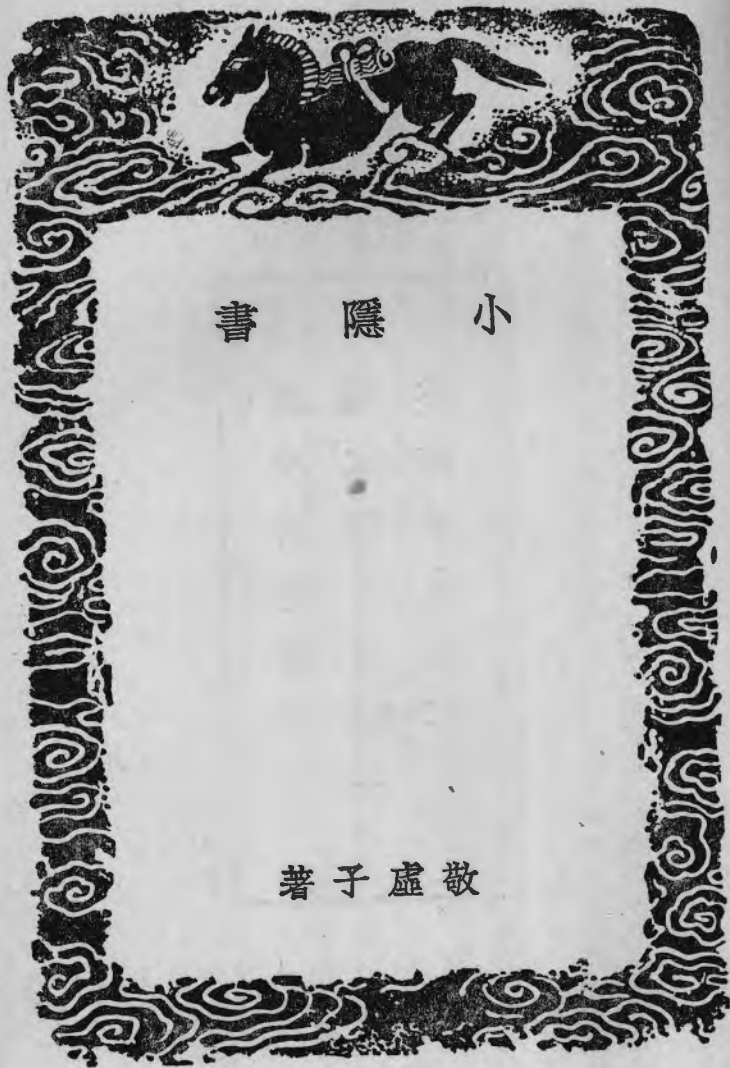 小隱書
敬虛子著